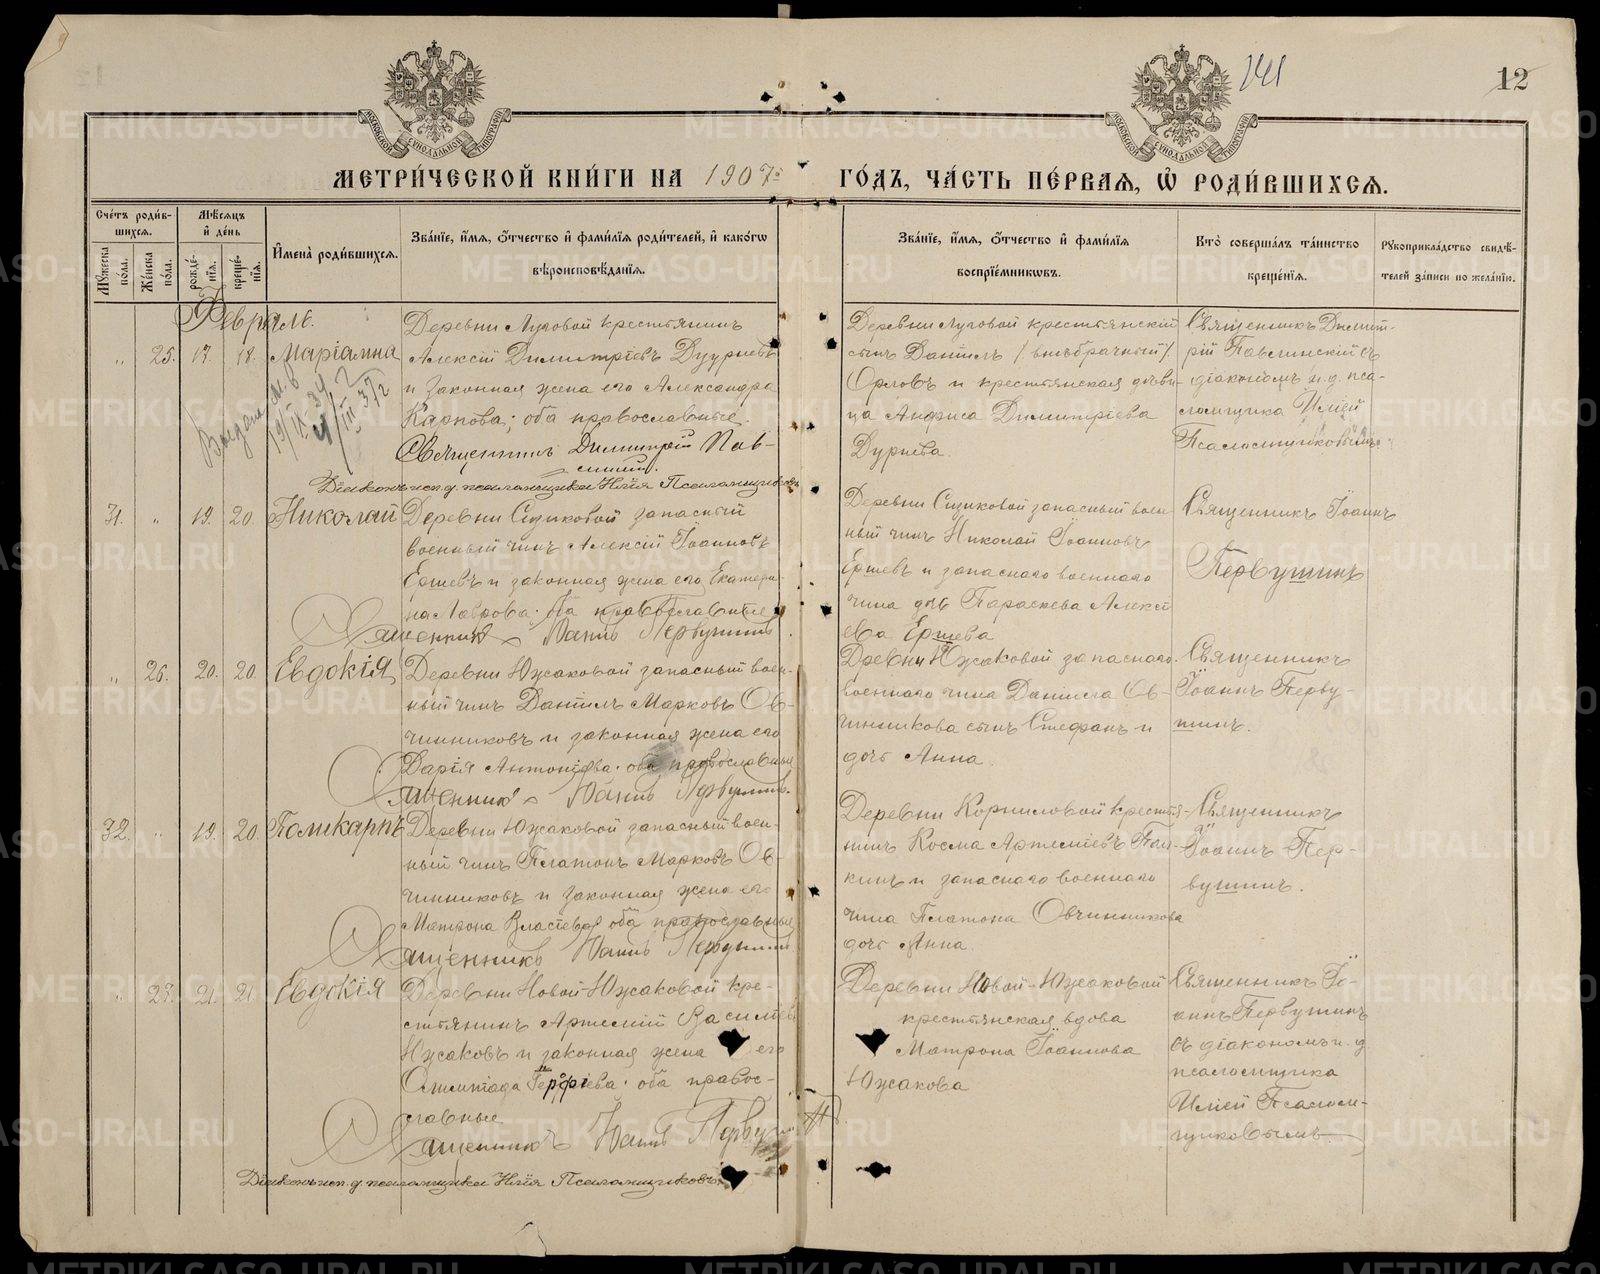 141
12
МЕТРИ́ЧЕСКОЙ КНИ́ГИ НА 1907й ГО́ДЪ, ЧА́СТЬ ПЕ́РВАЯ, Ѿ РОДИ́ВШИХСЯ.
Счетъ родившихся.
Мѣсяцъ и день
Мужеска пола.
Женска пола.
рожденія.
крещенія.
Имена родившихся.
Званіе, имя, отчество и фамилія родителей, и какогѡ вѣроисповѣданія.
Званіе, имя, отчество и фамилія воспріемникѡвъ.
Кто совершалъ таинство крещенія.
Рукоприкладство свидѣтелей записи по желанію.
Февраль.
„ 25. 17. 18. Маріамна
Деревни Луговой крестьянинъ
Алексій Димитріевъ
и законная жена его Александра
Карпова; оба православные.
Священникъ Димитрій Пав-
линскій.
Діаконъ исп. д. псаломщика Илія Псаломщиковъ
Деревни Луговой крестьянскій
сынъ Даніилъ /внѣбрачный/
Орловъ и крестьянская дѣви-
ца Анфиса Димитріева
Дурнева.
Священникъ Димит-
рій Павлинскій съ
діакономъ и. д. пса-
ломщика Иліей
Псаломщиковымъ.
31. „ 19. 20. Николай
Деревни Сизиковой запасный
военный чинъ Алексій Іоанновъ
Ершевъ и законная жена его Екатери-
на Лаврова. Оба православные
Священникъ Іоаннъ Первушинъ
Деревни Сизиковой запасный воен-
ный чинъ Николай Іоанновъ
Ершевъ и запаснаго военнаго
чина дчь Параскева Алексі-
ева Ершева
Священникъ Іоаннъ
Первушинъ
„ 26. 20. 20. Евдокія
Деревни Южаковой запасный воен-
ный чинъ Даніилъ Марковъ Ов-
чинниковъ и законная жена его
Дарія Антоніева. оба православные
Священникъ Іоаннъ Первушинъ.
Древни Южаковой запаснаго
военнаго чина Даніила Ов-
чинникова сынъ Стефанъ и
дочь Анна.
Священникъ
Іоаннъ Перву-
шинъ.
32. „ 19. 20. Поликарпъ
Деревни Южаковой запасный воен-
ный чинъ Платонъ Марковъ Ов-
чинниковъ и законная жена его
Матрона Власіева оба православные
Священникъ Іоаннъ Первушинъ
Деревни Корниловой крестья-
нинъ Косма Артеміевъ Пан-
кинъ и запаснаго военнаго
чина Платона Овчинникова
дочь Анна.
Священникъ
Іоаннъ Пер-
вушинъ.
„ 27. 21. 21 Евдокія
Деревни Новой-Южаковой кре-
стьянинъ Артемій Васильевъ
Южаковъ и законная жена его
Олимпіада оба правос-
лавные
Священникъ Іоаннъ Перву
Діаконъ исп. д. псаломщика Илія Псаломщиковъ.
Деревни Новой-Южаковой
крестьянская вдова
Матрона Іоаннова
Южакова
Священникъ Іо-
аннъ Первушинъ
съ діакономъ и. д.
псаломщика
Иліей Псалом-
щиковымъ.